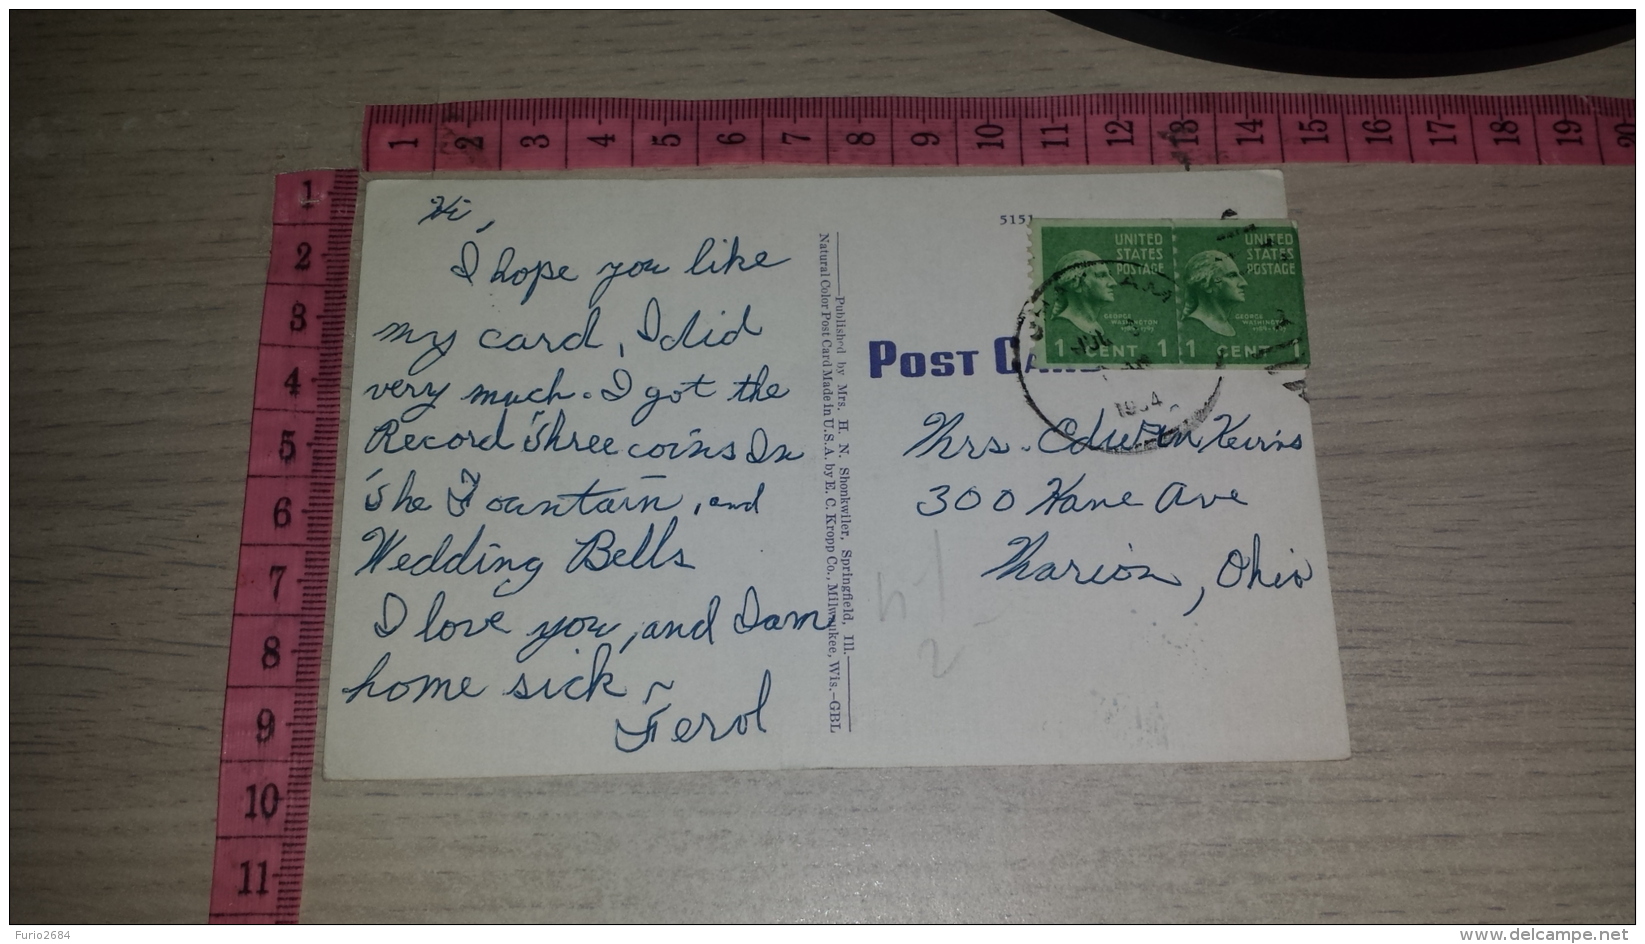 1 2 3 4 5 6 7 8 9 10 11 12 13 14 15 16 17 18 19 20
1
2
3
4
5
6
7
8
9
10
11
Hi,
I hope you like
my card, I did
very much. I got the
Record Three coins In
The Fountain, and
Wedding Bells
I love you, and I am
home sick ~
Ferol
Published by Mrs. H. N. Shonkwiler, Springfield, Ill.
Natural Color Post Card Made in U.S.A. by E. C. Kropp Co., Milwaukee, Wis.-GBL
5151
UNITED STATES POSTAGE
GEORGE WASHINGTON
1 CENT 1
UNITED STATES POSTAGE
GEORGE WASHINGTON
1 CENT 1
AM
JUL
POST
Mrs. Edwin Keirns
300 Kane Ave
Marion, Ohio
Furio2684
www.delcampe.net